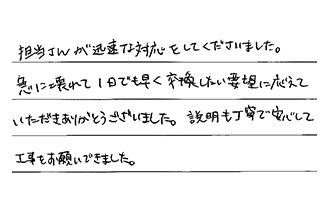 担当さんが迅速な対応をしてくださいました。
急に壊れて1日でも早く交換したい要望に応えて
いただきありがとうございました。説明も丁寧で安心して
工事もお願いできました。